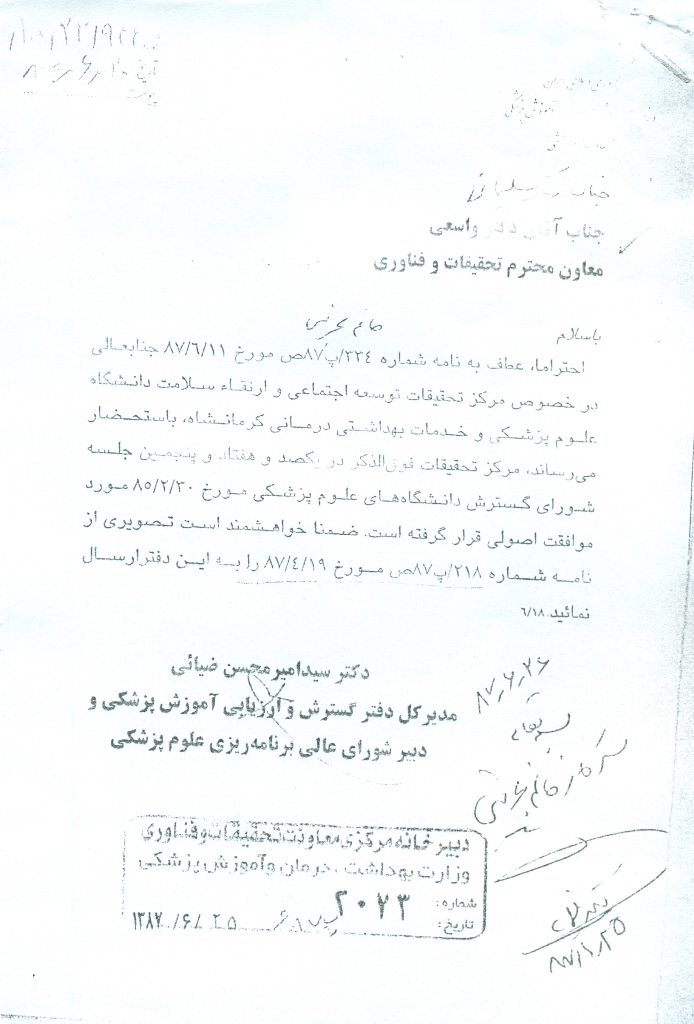 آموزش پزشکی
جناب
جناب آقای دکتر واسعی
معاون محترم تحقیقات و فناوری
خانم
باسلام
احتراما، عطف به نامه شماره ۲۲۴/پ۸۷ص مورخ ۸۷/۶/۱۱ جنابعالی
در خصوص مرکز تحقیقات توسعه اجتماعی و ارتقاء سلامت دانشگاه
علوم پزشکی و خدمات بهداشتی درمانی کرمانشاه، باستحضار
می‌رساند، مرکز تحقیقات فوق‌الذکر در یکصد و هفتاد و پنجمین جلسه
شورای گسترش دانشگاه‌های علوم پزشکی مورخ ۸۵/۲/۲۰ مورد
موافقت اصولی قرار گرفته است. ضمنا خواهشمند است تصویری از
نامه شماره ۲۱۸/پ۸۷ص مورخ ۸۷/۴/۱۹ را به این دفتر ارسال
نمائید. ۶/۱۸
دکتر سید امیر محسن ضیائی
مدیر کل دفتر گسترش و ارزیابی آموزش پزشکی و
دبیر شورای عالی برنامه‌ریزی علوم پزشکی
۸۷،۶،۲۶
سرکار خانم
دبیرخانه مرکزی معاونت تحقیقات و فناوری
وزارت بهداشت، درمان و آموزش پزشکی
شماره: ۲۰۷۳
تاریخ: ۱۳۸۷/۶/۲۵